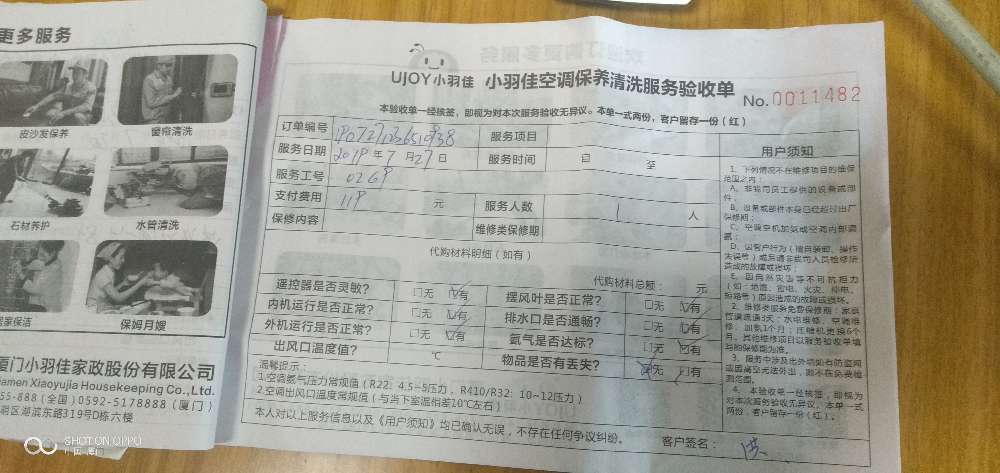 更多服务
皮沙发保养
窗帘清洗
石材养护
水管清洗
居家保洁
保姆月嫂
厦门小羽佳家政股份有限公司
Xiamen Xiaoyujia Housekeeping Co., Ltd.
0592-5178888（厦门）
湖滨东路319号D栋六楼
SHOT ON OPPO
UJOY小羽佳 小羽佳空调保养清洗服务验收单
No. 0011482
本验收单一经核签，即视为对本次服务验收无异议。本单一式两份，客户留存一份（红）
订单编号
服务项目
服务日期 2019年7月27日
服务时间 自 至
服务工号 0269
支付费用 119 元
服务人数 1 人
保修内容
维修类保修期
代购材料明细（如有）
代购材料总额： 元
遥控器是否灵敏？ □无 ☑有
摆风叶是否正常？ □无 ☑有
内机运行是否正常？ □无 ☑有
排水口是否通畅？ □无 ☑有
外机运行是否正常？ □无 ☑有
氨气是否达标？ □无 ☑有
出风口温度值？ ℃
物品是否有丢失？ ☑无 □有
温馨提示：
1.空调氨气压力常规值（R22：4.5~5压力，R410/R32：10~12压力）
2.空调出风口温度常规值（与当下室温相差10℃左右）
本人对以上服务信息以及《用户须知》均已确认无误，不存在任何争议纠纷。
客户签名： 洪
用户须知
1、下列情况不在维修项目的维保范围之内：
A、非我司员工提供的设备或部件；
B、设备或部件本身已经超过出厂保修期；
C、空调空机加氨或空调内部漏氨；
D、因客户行为（擅自装卸、操作失误等）或为请非我司人员检修所造成的故障或损坏；
E、因自然灾害等不可抗拒力（如：地震、雷电、火灾、停电、
2、维修类服务免费保修期：家庭管道疏通3天；水电维修、空调维修、加氨1个月；压缩机更换6个月。其他维修项目以服务验收单填写的保修期为准。
3、服务中涉及出外墙如有防盗网或因高空无法外出，则不在免费检测范围。
4、本验收单一经核签，即视为对本次服务验收无异议。本单一式两份，客户留存一份（红）。